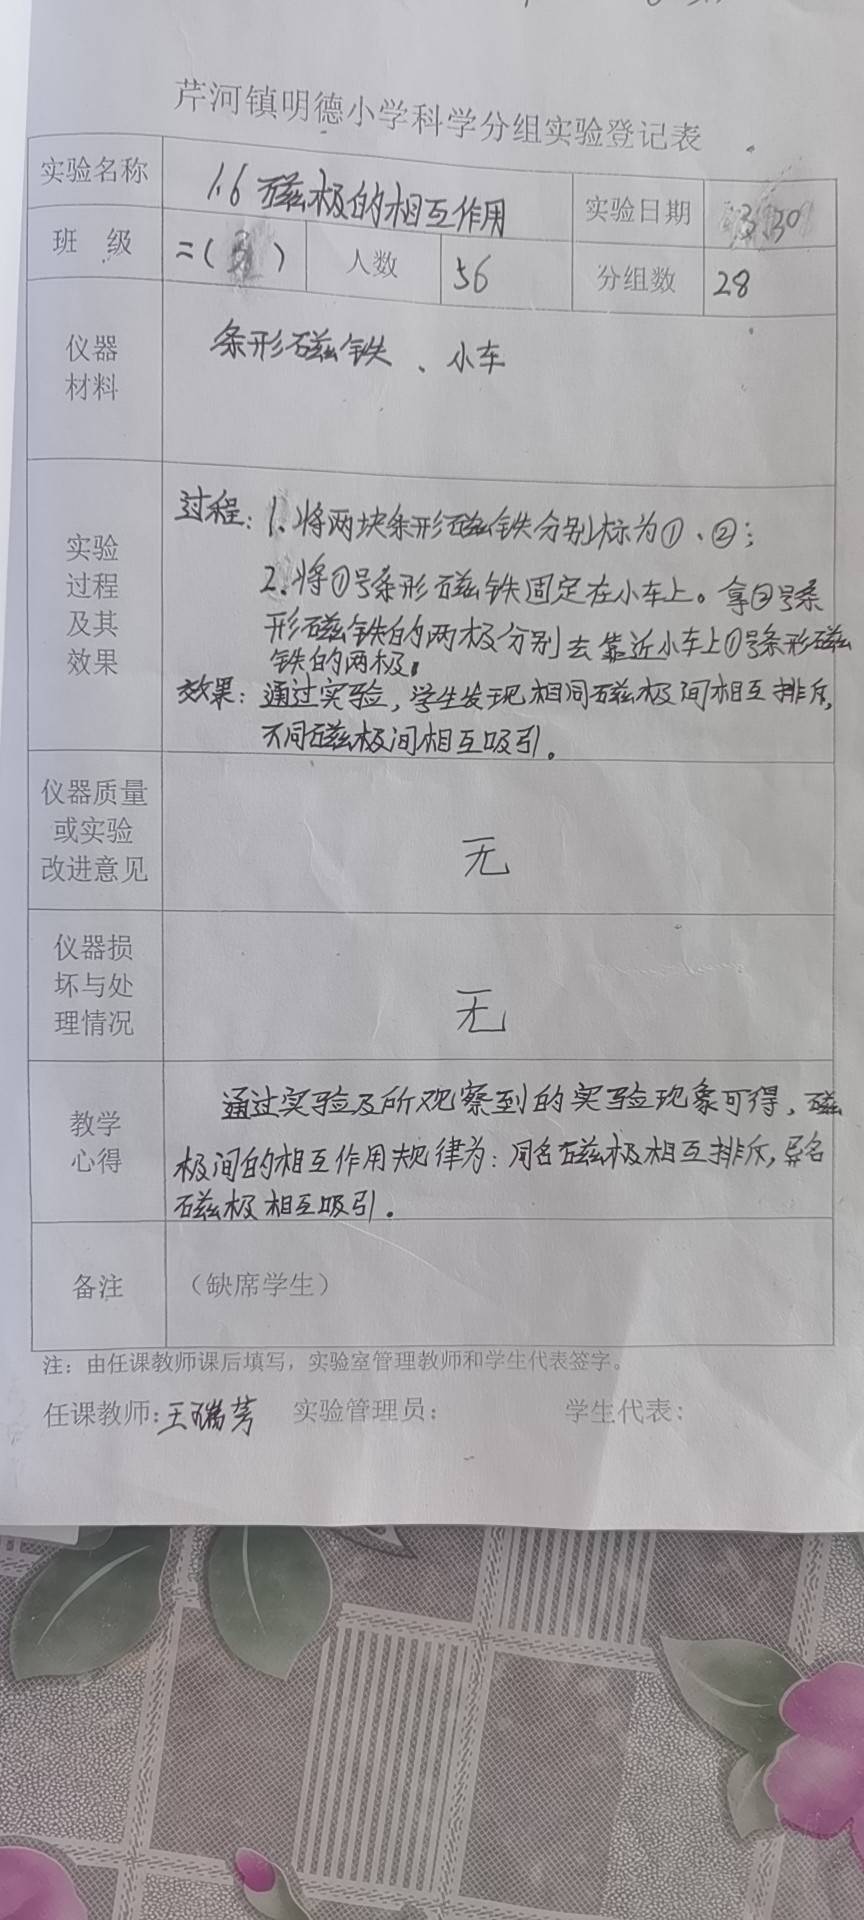 芹河镇明德小学科学分组实验登记表
实验名称 1.6 磁极的相互作用 实验日期 3.30
班 级 二( ) 人数 56 分组数 28
仪器
材料
条形磁铁、小车
实验
过程
及其
效果
过程:1、将两块条形磁铁分别标为①、②;
2、将①号条形磁铁固定在小车上。拿②号条
形磁铁的两极分别去靠近小车上①号条形磁
铁的两极。
效果:通过实验,学生发现相同磁极间相互排斥,
不同磁极间相互吸引。
仪器质量
或实验
改进意见
无
仪器损
坏与处
理情况
无
教学
心得
通过实验及所观察到的实验现象可得,磁
极间的相互作用规律为:同名磁极相互排斥,异名
磁极相互吸引.
备注 (缺席学生)
注:由任课教师课后填写,实验室管理教师和学生代表签字。
任课教师:王瑞芳 实验管理员: 学生代表: